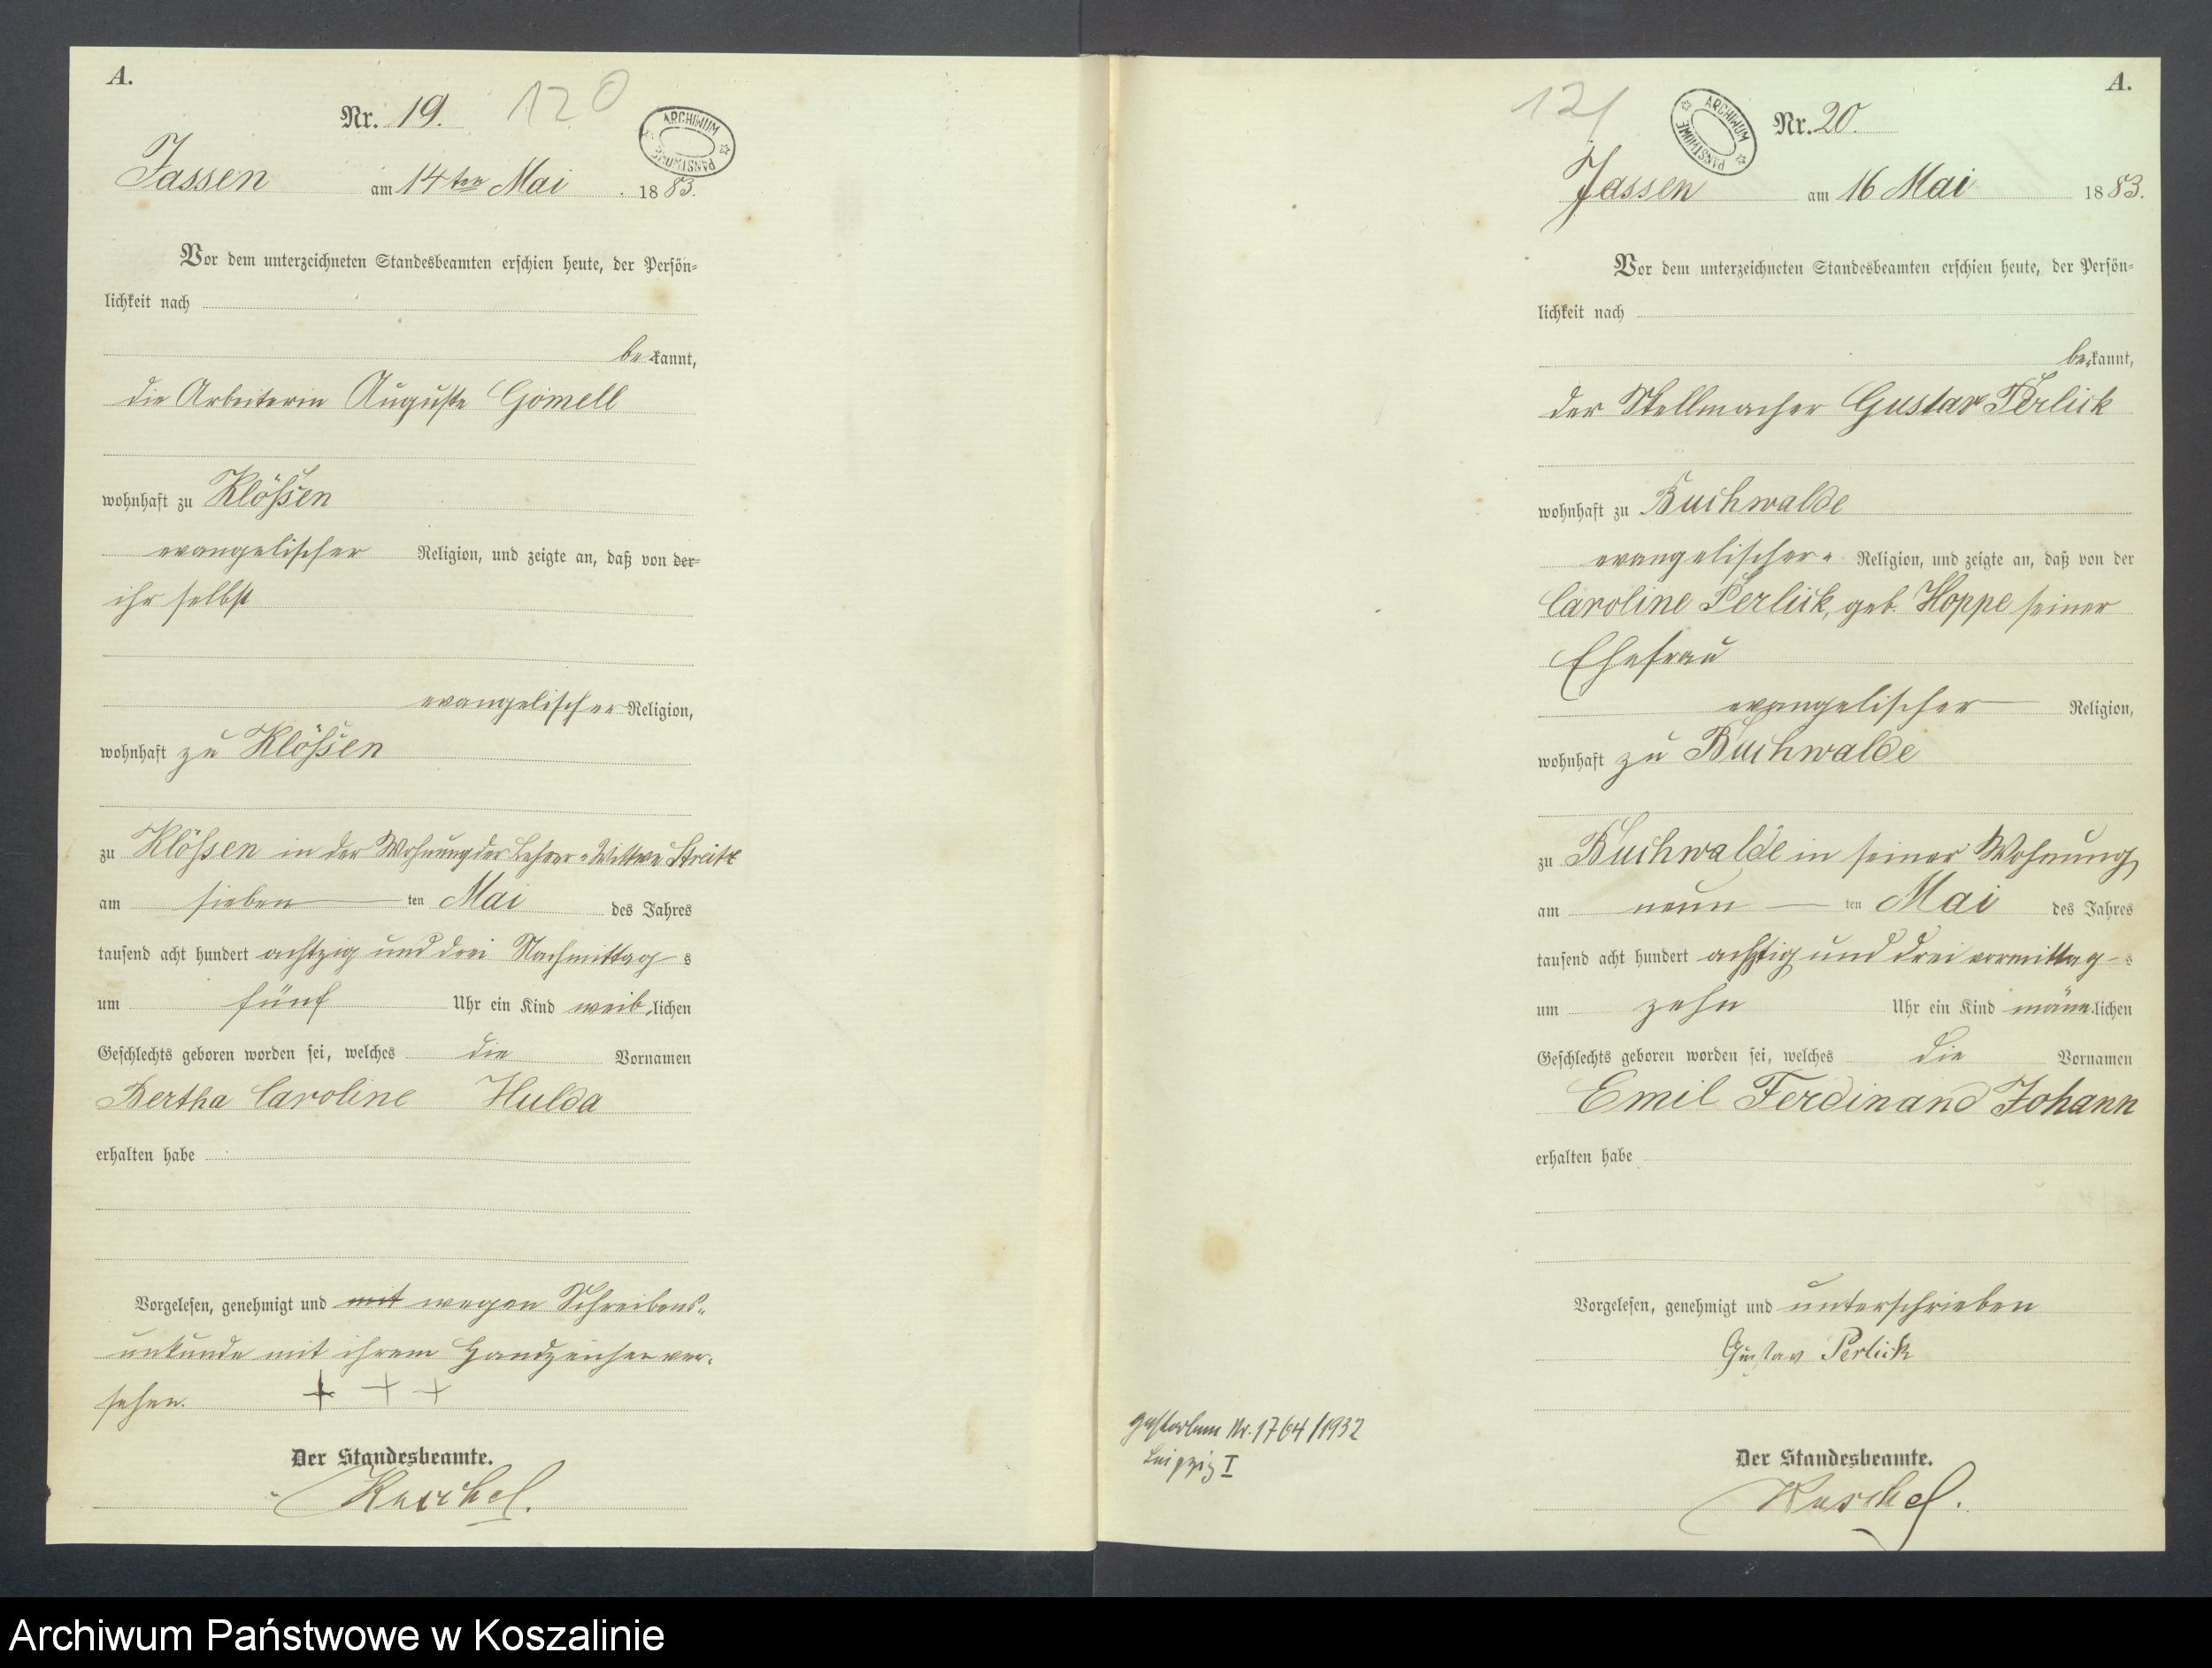 A.
Nr. 19. 120
ARCHIWUM PAŃSTWOWE
Jassen am 14ten Mai 1883.
Vor dem unterzeichneten Standesbeamten erschien heute, der Persön-
lichkeit nach
bekannt,
die Arbeiterin Auguste Gomell
wohnhaft zu Klößen
evangelischer Religion, und zeigte an, daß von der
ihr selbst
evangelischer Religion,
wohnhaft zu Klößen
zu Klößen in der Wohnung der Lehrer-Wittwe
am sieben ten Mai des Jahres
tausend acht hundert achtzig und drei Nachmittag s
um fünf Uhr ein Kind weiblichen
Geschlechts geboren worden sei, welches die Vornamen
Bertha Caroline Hulda
erhalten habe
Vorgelesen, genehmigt und mit wegen Schreibens-
unkunde mit ihrem Handzeichen ver-
sehen. + + +
Der Standesbeamte.
A.
121 Nr. 20.
ARCHIWUM PAŃSTWOWE
Jassen am 16 Mai 1883.
Vor dem unterzeichneten Standesbeamten erschien heute, der Persön-
lichkeit nach
bekannt,
der Stellmacher Gustav Perlick
wohnhaft zu Buchwalde
evangelischer Religion, und zeigte an, daß von der
Caroline Perlick, geb. Hoppe seiner
Ehefrau
evangelischer Religion,
wohnhaft zu Buchwalde
zu Buchwalde in seiner Wohnung
am neun ten Mai des Jahres
tausend acht hundert achtzig und drei vormittag s
um zehn Uhr ein Kind männlichen
Geschlechts geboren worden sei, welches die Vornamen
Emil Ferdinand Johann
erhalten habe
Vorgelesen, genehmigt und unterschrieben
Gustav Perlick
gestorben Nr. 1764/1932
Leipzig I
Der Standesbeamte.
Archiwum Państwowe w Koszalinie